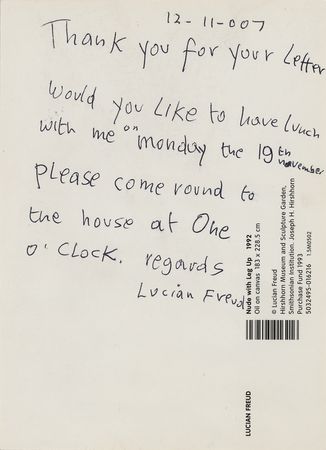 12-11-007
Thank you for your letter
Would you LIKE to have lunch
with me on monday the 19th november
please come round to
the house at One
O'Clock. regards
Lucian Freud
Nude with Leg Up 1992
Oil on canvas 183 x 228.5 cm
© Lucian Freud
Hirshhorn Museum and Sculpture Garden,
Smithsonian Institution. Joseph H. Hirshhorn
Purchase Fund 1993
5032495-016216 1.5M0502
LUCIAN FREUD